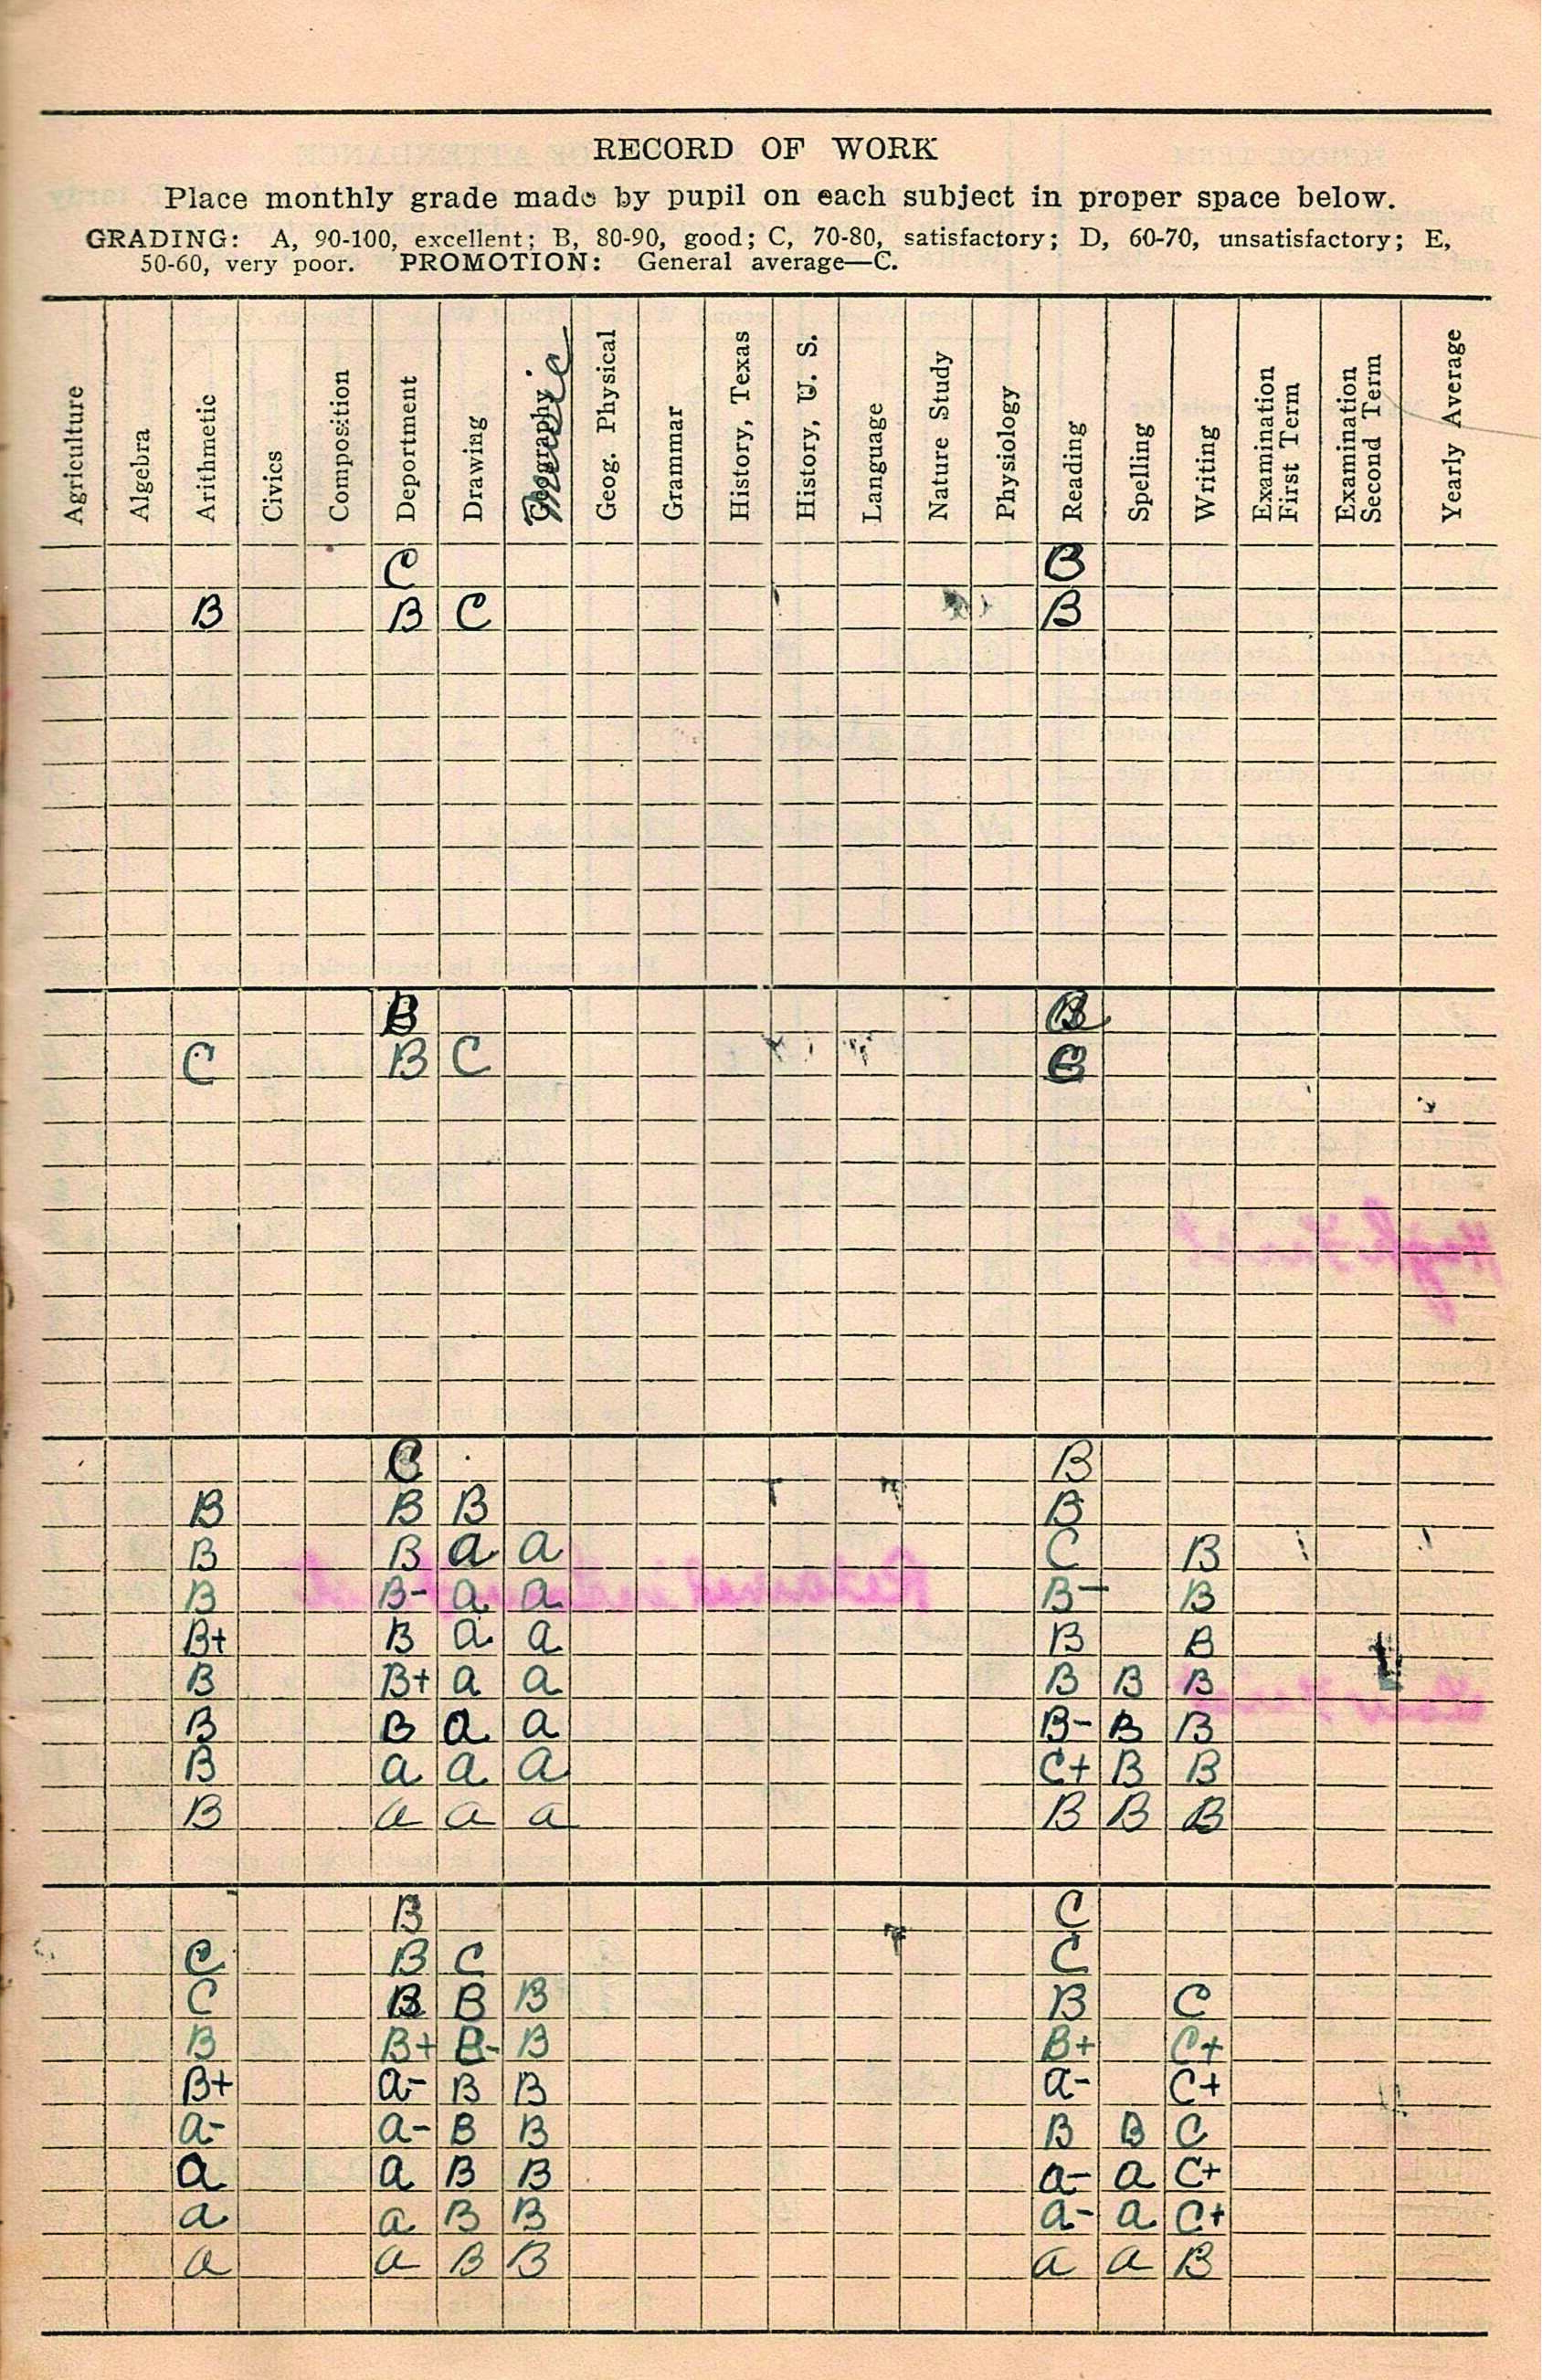 RECORD OF WORK
Place monthly grade made by pupil on each subject in proper space below.
GRADING: A, 90-100, excellent; B, 80-90, good; C, 70-80, satisfactory; D, 60-70, unsatisfactory; E,
50-60, very poor. PROMOTION: General average—C.
Agriculture
Algebra
Arithmetic
Civics
Composition
Deportment
Drawing
Geography Music
Geog. Physical
Grammar
History, Texas
History, U. S.
Language
Nature Study
Physiology
Reading
Spelling
Writing
Examination
First Term
Examination
Second Term
Yearly Average
C B
B B C B
B B
C B C
C B
B B B B
B B a a C B
B B- a a B- B
B+ B a a B B
B B+ a a B B B
B B a a B- B B
B a a a C+ B B
B a a a B B B
B C
C B C C
C B B B B C
B B+ B- B B+ C+
B+ a- B B a- C+
a- a- B B B B C
a a B B a- a C+
a a B B a- a C+
a a B B a a B